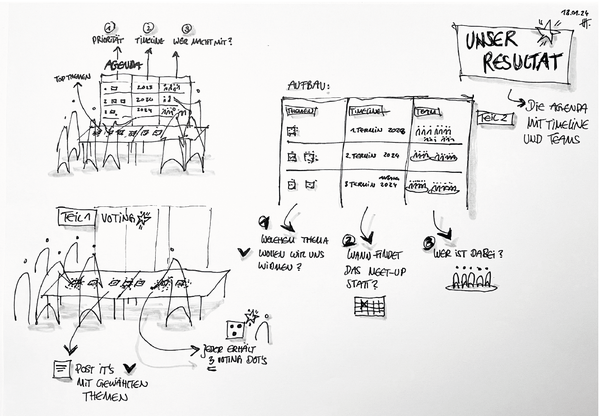 18.01.24
① ② ③
PRIORITÄT TIMELINE WER MACHT MIT?
AGENDA
TOP THEMEN
2023
2024
2024
UNSER
RESULTAT
DIE AGENDA
MIT TIMELINE
UND TEAMS
AUFBAU:
THEMEN TIMELINE TEAM
TEIL 2
1. TERMIN
2. TERMIN 2024
3. TERMIN 2024
TEIL 1 VOTING
① WELCHEM THEMA
WOLLEN WIR UNS
WIDMEN?
② WANN FINDET
DAS MEET-UP
STATT?
③ WER IST DABEI?
JEDER ERHÄLT
3 VOTING DOT'S
POST IT'S
MIT GEWÄHLTEN
THEMEN